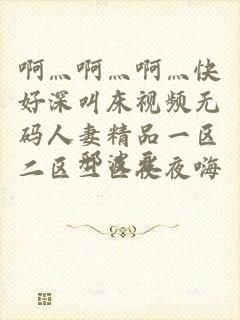 啊灬啊灬啊灬快
好深叫床视频无
码人妻精品一区
二区三区夜夜嗨